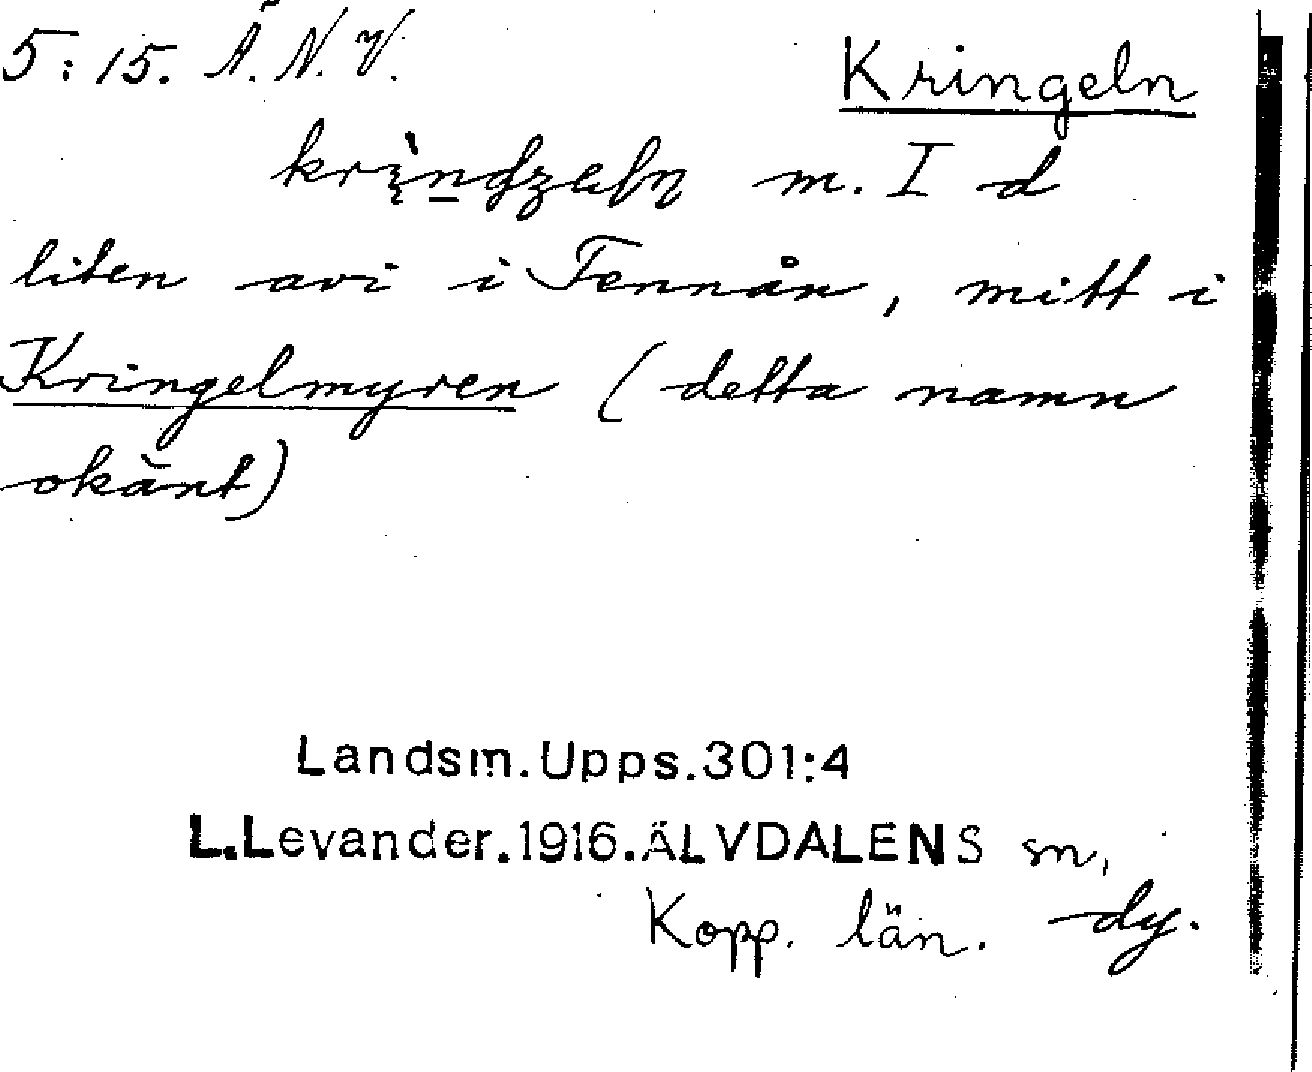 5:15. Ä.N.V.
Kringeln
m. I d
liten avi i Tennån, mitt i
Kringelmyren (detta namn
okänt)
Landsm.Upps.301:4
L.Levander.1916.ÄLVDALENS sn,
Kopp. län. dy.